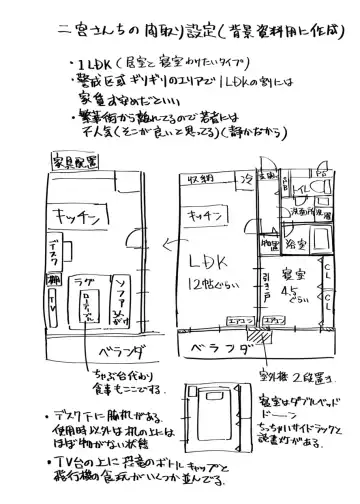 二宮さんちの間取り設定(背景資料用に作成)
・1LDK(居室と寝室わりたいタイプ)
・警戒区域ギリギリのエリアで1LDKの割には
家賃すなめだといい
・繁華街から離れてるので若者には
不人気(そこが良いと思ってる)(静かなから)
家具配置
キッチン
デスク
棚
TV
ラグ
ローテーブル
ソファ
ベランダ
収納
冷
キッチン
LDK
12帖ぐらい
玄関
トイレ
洗面所
浴室
物置
引き戸
寝室
4.5ぐらい
CL
CL
エアコン
エアコン
ベランダ
ちゃぶ台代わり
食事もここでする.
室外機2段置き
・デスク下に脇机がある.
使用時以外は机の上には
ほぼ物がない状態
・TV台の上に恐竜のボトルキャップと
飛行機の食玩がいくつか並んでる.
寝室はダブルベッド
ドーン
ちっちゃいサイドラックと
読書灯がある.